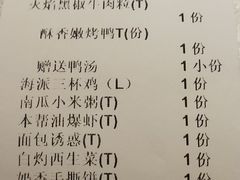 火焰黑椒牛肉粒(T)
1 份
酥香嫩烤鸭T(份)
1 份
赠送鸭汤 1 小份
海派三杯鸡（L） 1 份
南瓜小米粥(T) 1 份
本帮油爆虾(T) 1 份
面包诱惑(T) 1 份
白灼西生菜(T) 1 份
奶香手撕饼(T) 1 份